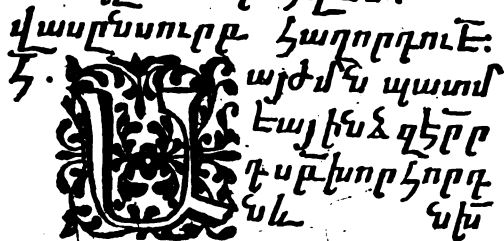 վասընսուրբ հաղորդուե:
Հ. Ա այժմն պատմ
եայ ինձ զերր
դ սբ խորհորդ
ն և նխ